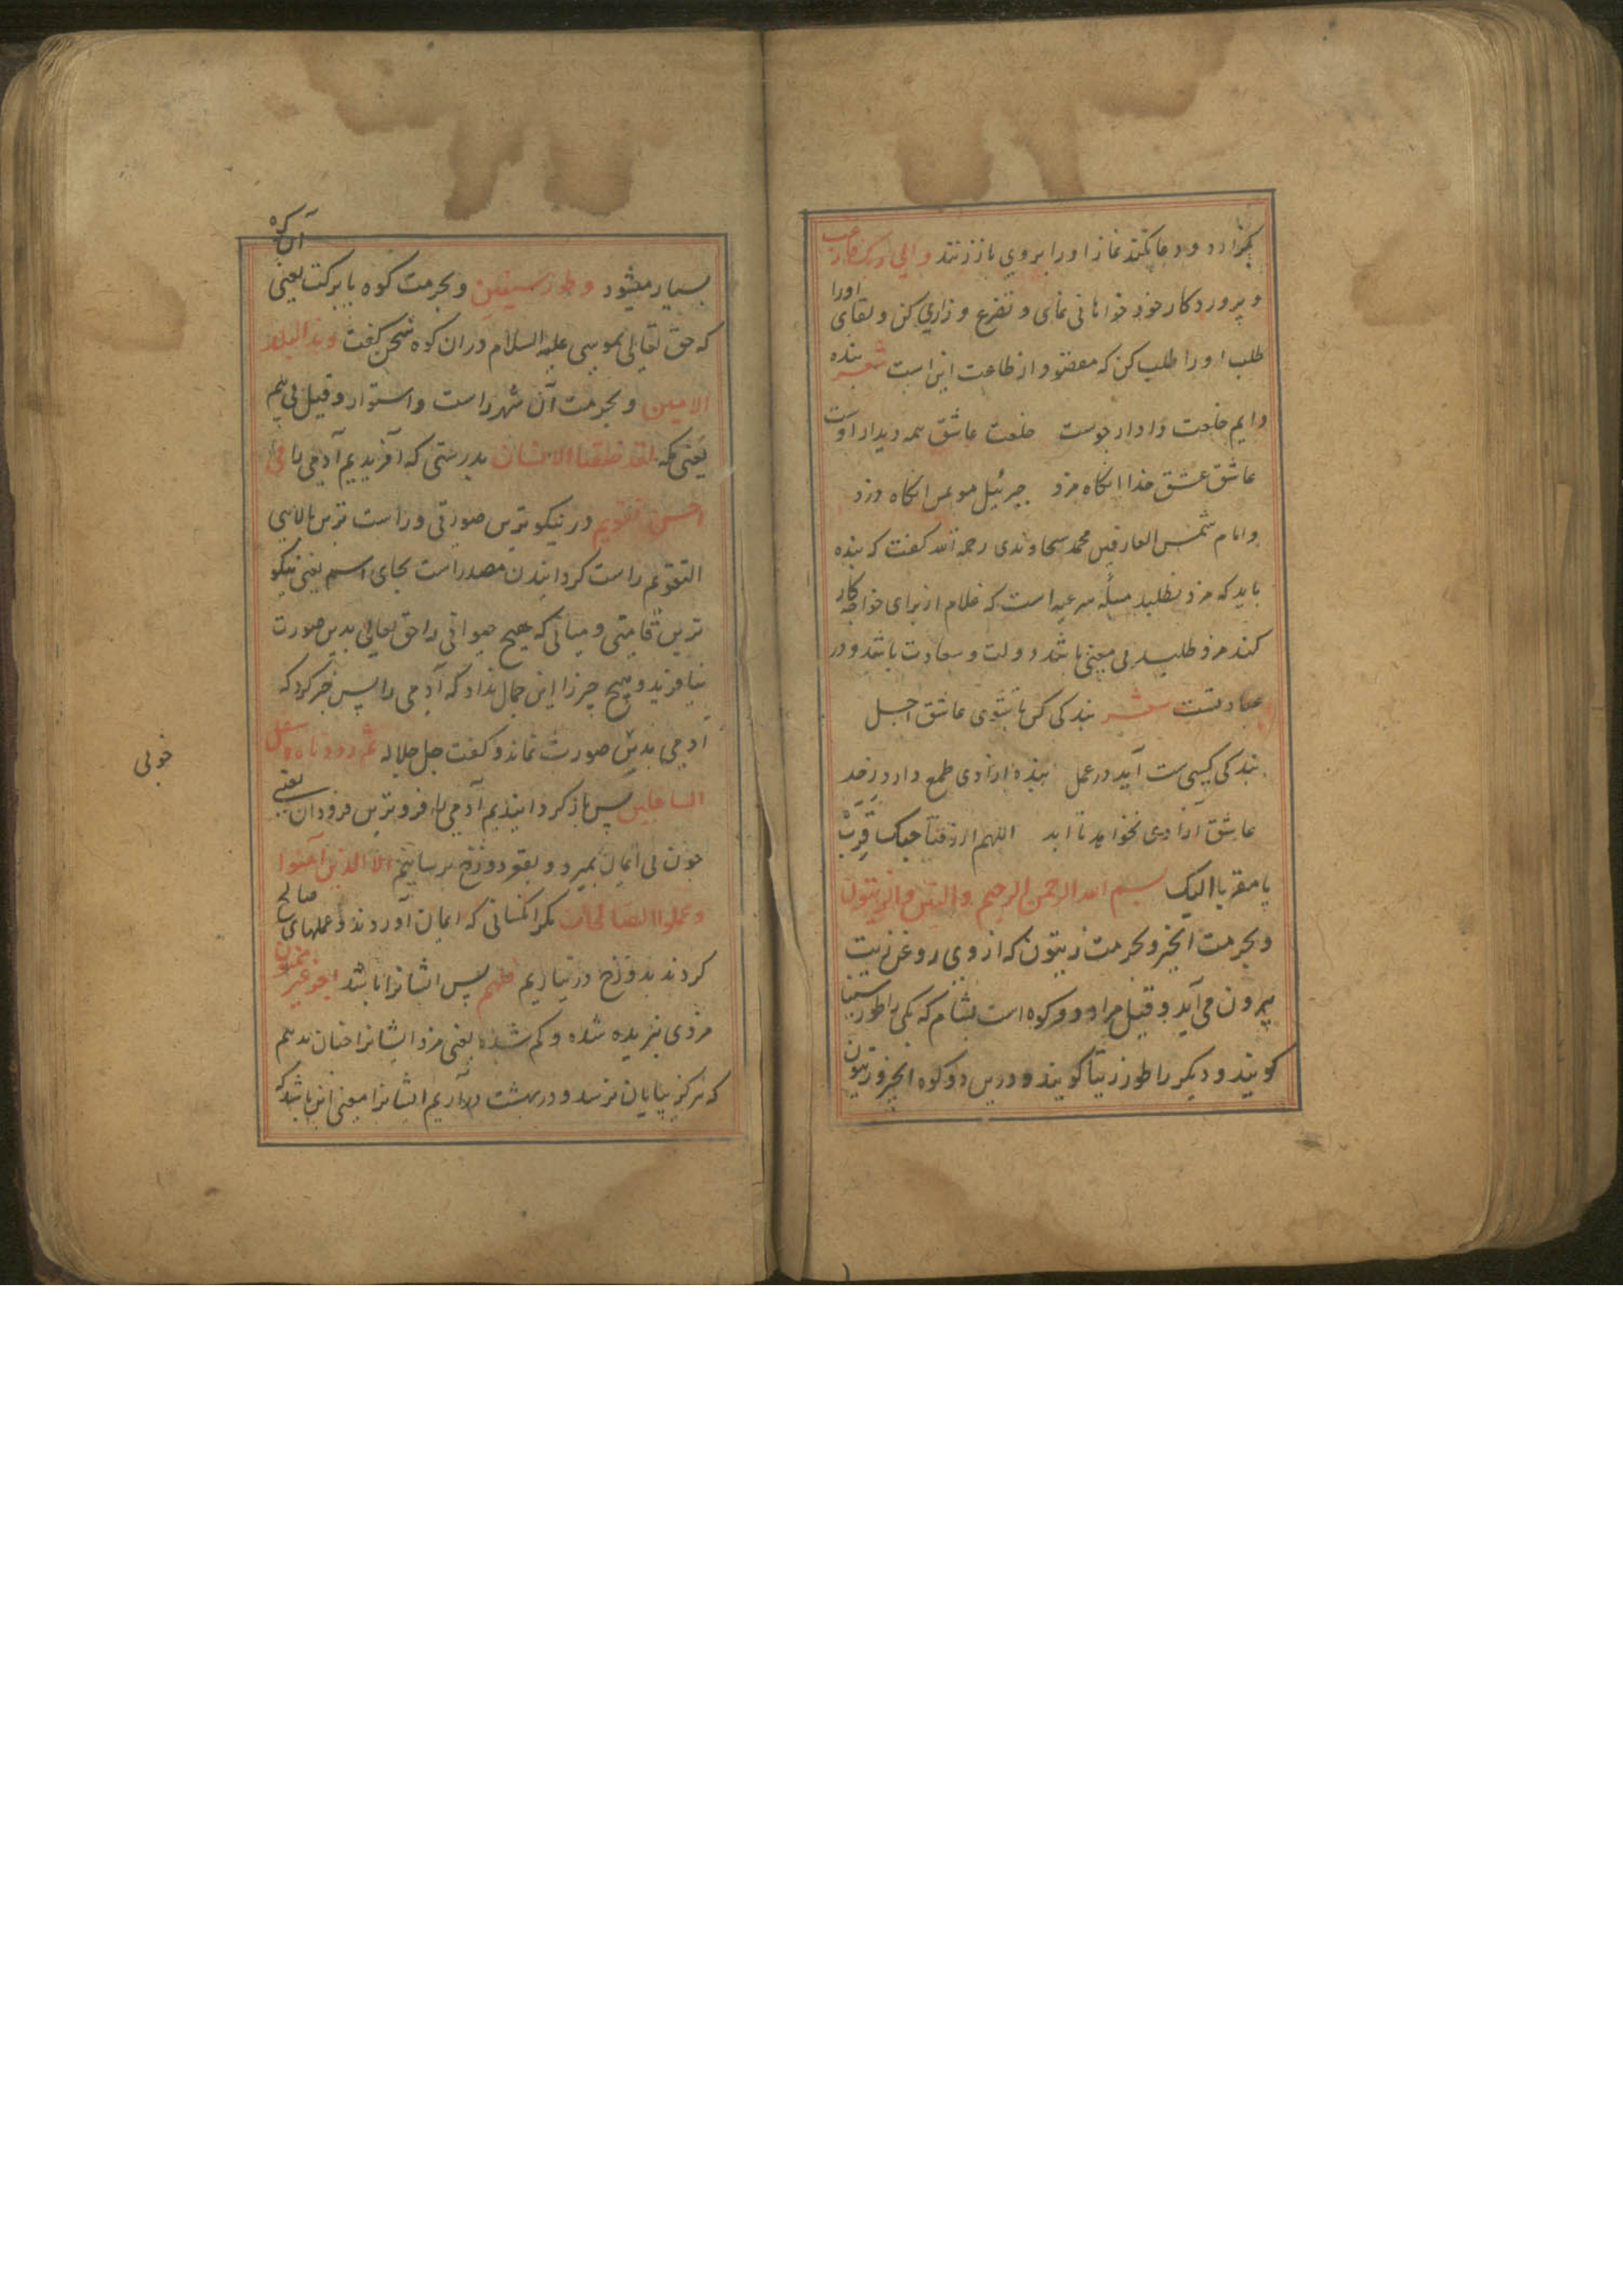 بگزارد و دعا نکند نماز او را بروی باز زنند والی ربک فارغب
و پرورد کار خود خواهانی نمای و تضرع و زاری کن و لقای اورا
طلب او را طلب کن که مقصود از طاعت این است شعر بنده
دایم خلعت و ادرار جوست خلعت عاشق همه دیدار اوست
عاشق عشق خدا انکاه مزد جبرئیل موتمن انکاه دزد
و امام شمس العارفین محمد سجاوندی رحمه الله کفت که بنده
باید که مزد نطلبد مسئله شرعیه است که غلام از برای خواجه کار
کند مزد طلبید بی معنی باشد دولت و سعادت باشد و در
عبادتست شعر بندکی کن تا شوی عاشق اجل
بندکی کسبی ست آید در عمل بنده ازادی طمع دارد زجد
عاشق آزادی نخواهد تا ابد اللهم ارزقنا حبک قرب
یا مقربا الیک بسم الله الرحمن الرحیم والتین والزیتون
و بحرمت انجیر و بحرمت زیتون که از وی روغن زیت
بیرون می آید و قیل مراد دو کوه است بشام که یکی را طور سینا
کویند و دیکر را طور زیتا کویند و درین دو کوه انجیر و زیتون
آن کوه
بسیار میشود وطور سینین و بحرمت کوه با برکت یعنی
که حق تعالی بموسی علیه السلام دران کوه سخن کفت وهذا البلد
الامین و بحرمت آن شهر راست و استوار و قیل بی بیم
یعنی مکه لقد خلقنا الانسان بدرستی که آفریدیم آدمی را فی
احسن تقویم در نیکوترین صورتی و راست ترین بالایی
التقویم راست کردانیدن مصدر است بجای اسم یعنی نیکو
ترین قامتی و میانی که هیچ حیوانی را حق تعالی بدین صورت
نیافرید و هیچ چیز را این جمال نداد که آدمی را پس خبر کرد که
آدمی بدین صورت نماند و کفت جل جلاله ثم رددناه اسفل
السافلین پس باز کردانیدیم آدمی را فروترین فرودان یعنی
خوبی
چون بی ایمان بمیرد و بقعر دوزخ برسانیم الا الذین آمنوا
وعملوا الصالحات مکر انکسانی که ایمان آوردند و عملهای صالح
کردند بدوزخ در نیاریم فلهم پس ایشانرا باشد اجر غیر ممنون
مزدی نبریده شده و کم شده یعنی مزد ایشانرا چنان ندهیم
که هرکز بپایان نرسد و در بهشت درآریم ایشانرا معنی این باشد که